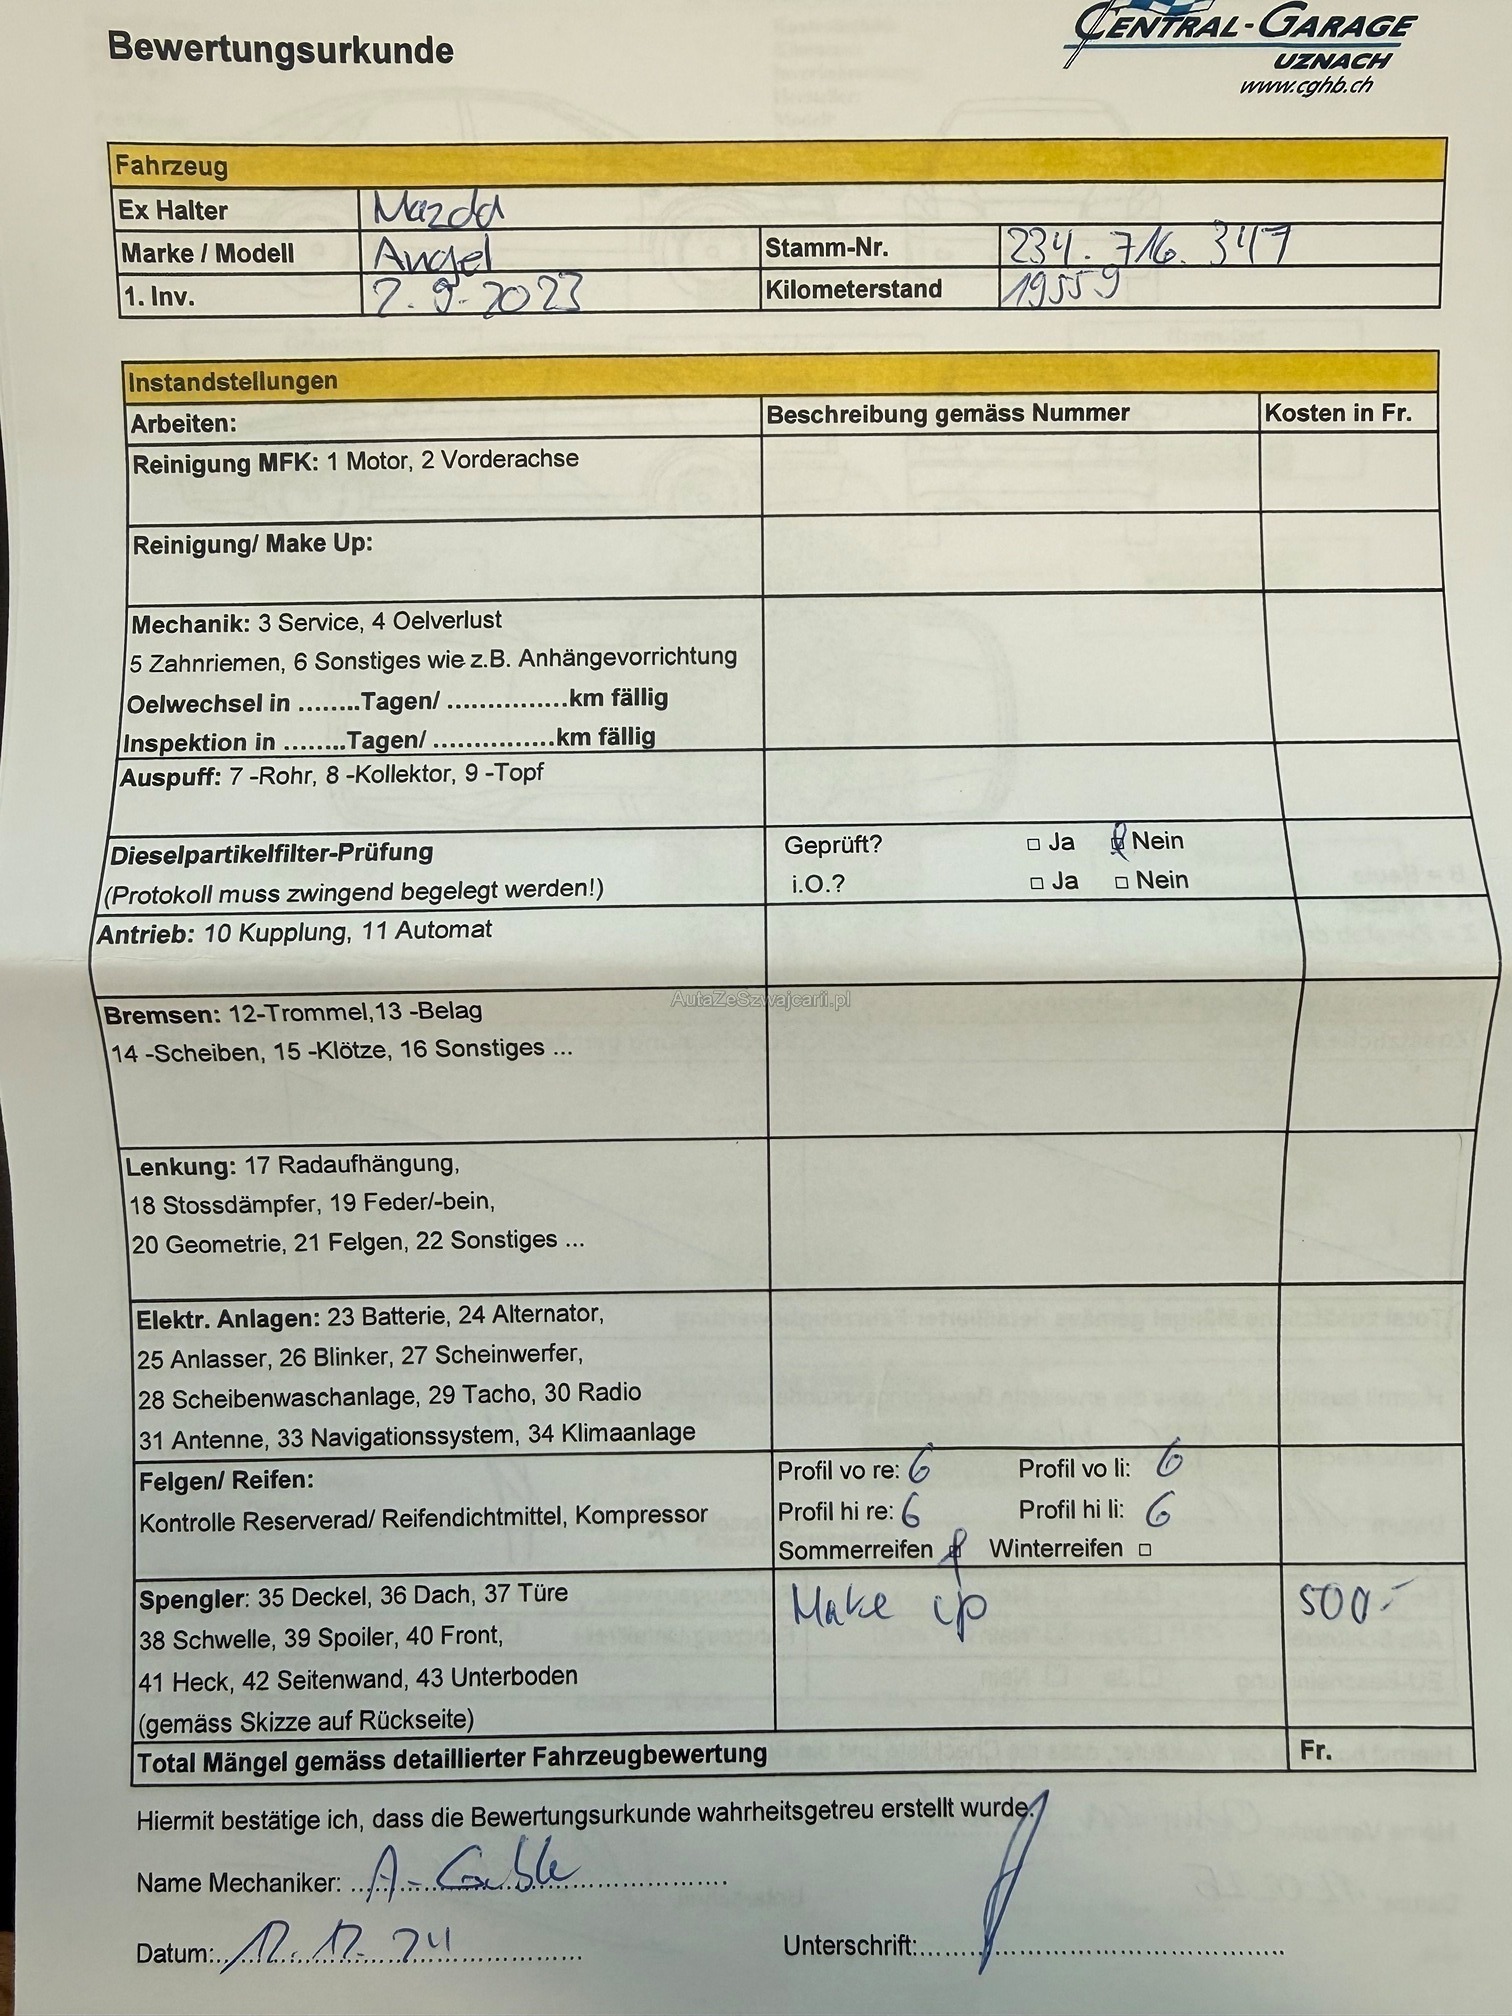 Bewertungsurkunde
CENTRAL-GARAGE
UZNACH
www.cghb.ch
Fahrzeug
Ex Halter Mazda
Marke / Modell Angel Stamm-Nr. 234. 716. 347
1. Inv. 7.9.2023 Kilometerstand 19559
Instandstellungen
Arbeiten: Beschreibung gemäss Nummer Kosten in Fr.
Reinigung MFK: 1 Motor, 2 Vorderachse
Reinigung/ Make Up:
Mechanik: 3 Service, 4 Oelverlust
5 Zahnriemen, 6 Sonstiges wie z.B. Anhängevorrichtung
Oelwechsel in ........Tagen/ ...............km fällig
Inspektion in ........Tagen/ ...............km fällig
Auspuff: 7 -Rohr, 8 -Kollektor, 9 -Topf
Dieselpartikelfilter-Prüfung Geprüft? □ Ja □ Nein
(Protokoll muss zwingend begelegt werden!) i.O.? □ Ja □ Nein
Antrieb: 10 Kupplung, 11 Automat
AutaZeSzwajcarii.pl
Bremsen: 12-Trommel,13 -Belag
14 -Scheiben, 15 -Klötze, 16 Sonstiges ...
Lenkung: 17 Radaufhängung,
18 Stossdämpfer, 19 Feder/-bein,
20 Geometrie, 21 Felgen, 22 Sonstiges ...
Elektr. Anlagen: 23 Batterie, 24 Alternator,
25 Anlasser, 26 Blinker, 27 Scheinwerfer,
28 Scheibenwaschanlage, 29 Tacho, 30 Radio
31 Antenne, 33 Navigationssystem, 34 Klimaanlage
Felgen/ Reifen: Profil vo re: 6 Profil vo li: 6
Kontrolle Reserverad/ Reifendichtmittel, Kompressor Profil hi re: 6 Profil hi li: 6
Sommerreifen □ Winterreifen □
Spengler: 35 Deckel, 36 Dach, 37 Türe Make up 500.-
38 Schwelle, 39 Spoiler, 40 Front,
41 Heck, 42 Seitenwand, 43 Unterboden
(gemäss Skizze auf Rückseite)
Total Mängel gemäss detaillierter Fahrzeugbewertung Fr.
Hiermit bestätige ich, dass die Bewertungsurkunde wahrheitsgetreu erstellt wurde.
Name Mechaniker: A.
Datum: 12.12.24 Unterschrift: